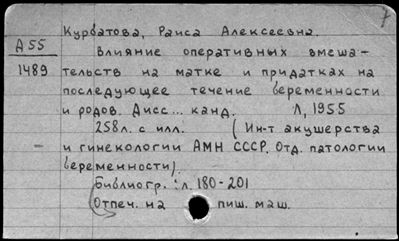 7
Курбатова, Раиса Алексеевна.
А55
1489
Влияние оперативных вмеша-
тельств на матке и придатках на
последующее течение беременности
и родов. Дисс... канд. Л, 1955
258л. с илл. (Ин-т акушерства
и гинекологии АМН СССР. Отд. патологии
беременности).
Библиогр.: л. 180-201
Отпеч. на пиш. маш.